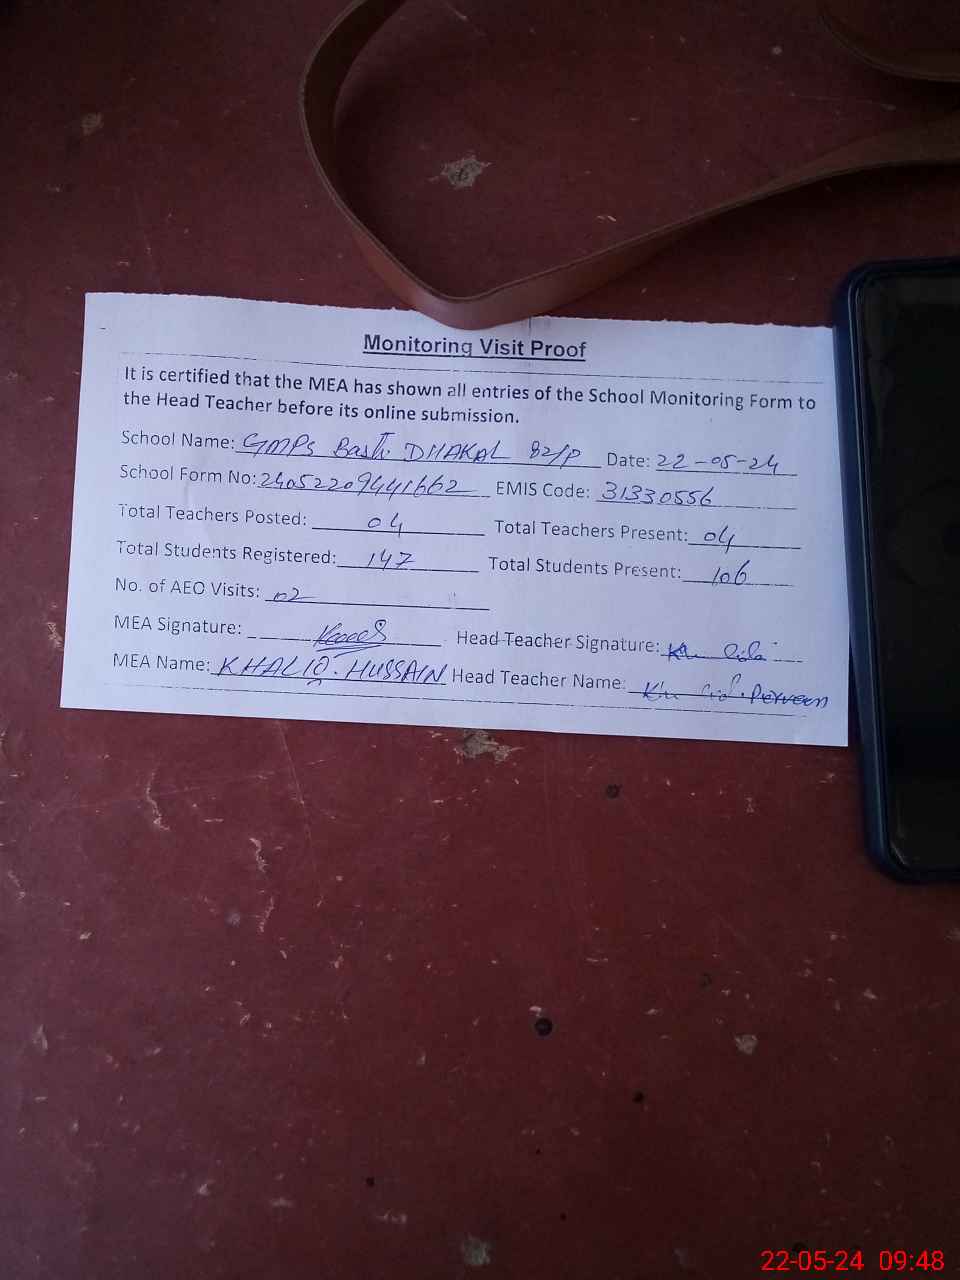 Monitoring Visit Proof
It is certified that the MEA has shown all entries of the School Monitoring Form to
the Head Teacher before its online submission.
School Name: GMPS Basti DHAKAL 82/P Date: 22-05-24
School Form No: 24052209441662 EMIS Code: 31330556
Total Teachers Posted: 04 Total Teachers Present: 04
Total Students Registered: 147 Total Students Present: 106
No. of AEO Visits: 02
MEA Signature: Head Teacher Signature:
MEA Name: KHALIQ. HUSSAIN Head Teacher Name: Perveen
22-05-24 09:48